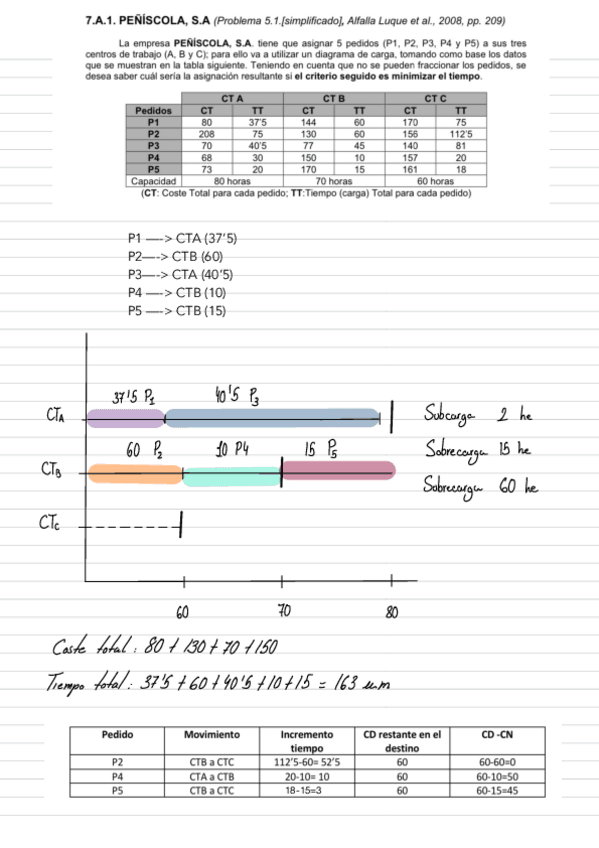 7.A.1. PEÑÍSCOLA, S.A (Problema 5.1.[simplificado], Alfalla Luque et al., 2008, pp. 209)
La empresa PEÑÍSCOLA, S.A. tiene que asignar 5 pedidos (P1, P2, P3, P4 y P5) a sus tres
centros de trabajo (A, B y C); para ello va a utilizar un diagrama de carga, tomando como base los datos
que se muestran en la tabla siguiente. Teniendo en cuenta que no se pueden fraccionar los pedidos, se
desea saber cuál sería la asignación resultante si el criterio seguido es minimizar el tiempo.
CT A CT B CT C
Pedidos CT TT CT TT CT TT
P1 80 37'5 144 60 170 75
P2 208 75 130 60 156 112'5
P3 70 40'5 77 45 140 81
P4 68 30 150 10 157 20
P5 73 20 170 15 161 18
Capacidad 80 horas 70 horas 60 horas
(CT: Coste Total para cada pedido; TT:Tiempo (carga) Total para cada pedido)
P1 —-> CTA (37'5)
P2—-> CTB (60)
P3—-> CTA (40'5)
P4 —-> CTB (10)
P5 —-> CTB (15)
37'5 P1 40'5 P3
CTA Subcarga 2 he
60 P2 10 P4 15 P5 Sobrecarga 15 he
CTB
Sobrecarga 60 he
CTC
60 70 80
Coste total: 80 + 130 + 70 + 150
Tiempo total: 37'5 + 60 + 40'5 + 10 + 15 = 163 u.m
Pedido Movimiento Incremento tiempo CD restante en el destino CD -CN
P2 CTB a CTC 112'5-60= 52'5 60 60-60=0
P4 CTA a CTB 20-10= 10 60 60-10=50
P5 CTB a CTC 18-15=3 60 60-15=45